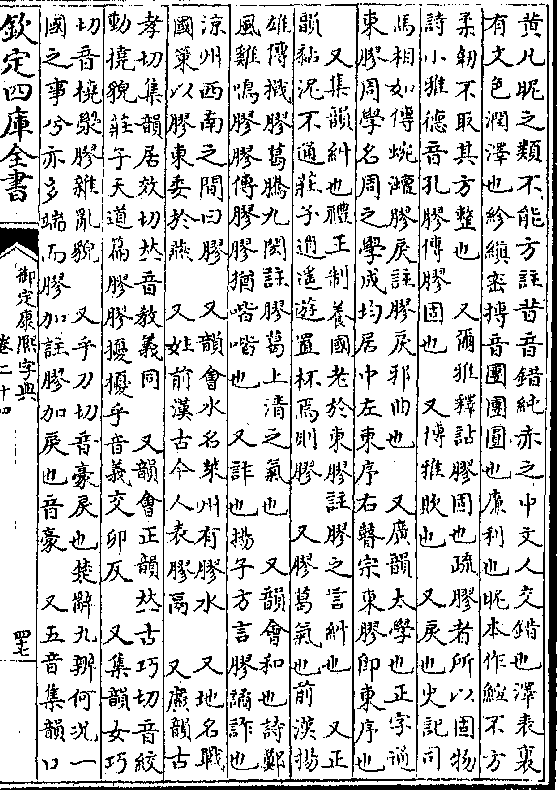 黄凡昵之類不能方註昔音錯純赤之中文人交錯也澤表裏
有文色潤澤也紾縝密摶音團團圜也廉利也昵本作䵑不方
柔韌不取其方整也　又爾雅釋詁膠固也疏膠者所以固物
詩小雅德音孔膠傳膠固也　又博雅欺也　又戾也史記司
馬相如傳蜿灗膠戾註膠戾邪曲也　又廣韻太學也正字通
東膠周學名周之學成均居中左東序右瞽宗東膠卽東序也
又集韻糾也禮王制養國老於東膠註膠之言糾也　又正
韻黏泥不通莊子逍遙遊置杯焉則膠　又膠葛氣也前漢揚
雄傳撠膠葛騰九閎註膠葛上清之氣也　又韻會和也詩鄭
風雞鳴膠膠傳膠膠猶喈喈也　又詐也揚子方言膠譎詐也
涼州西南之閒曰膠　又韻會水名萊州有膠水　又地名戰
國策以膠東委於燕　又姓前漢古今人表膠鬲　又廣韻古
孝切集韻居效切𠀤音教義同　又韻會正韻𠀤古巧切音絞
動撓貌莊子天道篇膠膠擾擾乎音義交卯反　又集韻女巧
切音橈㯯膠雜亂貌　又乎刀切音豪戾也楚辭九辯何況一
國之事兮亦多端而膠加註膠加戾也音豪　又五音集韻口
欽定四庫全書
御定康熙字典
卷二十四
罒七